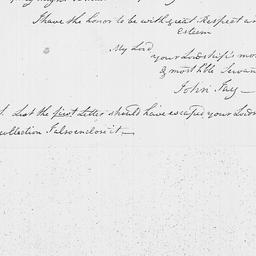 I have the honor to be with great Respect an
Esteem
My Lord
your Lordship's mo
& most hble Servan
John Jay —
Lest the first Letter should have escaped your Lords
collection I also enclose it —